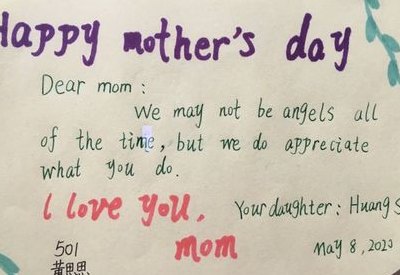 Happy mother's day
Dear mom :
We may not be angels all
of the time, but we do appreciate
what you do.
I love you,
mom
Your daughter : Huang S
May 8, 2020
501
黃思思